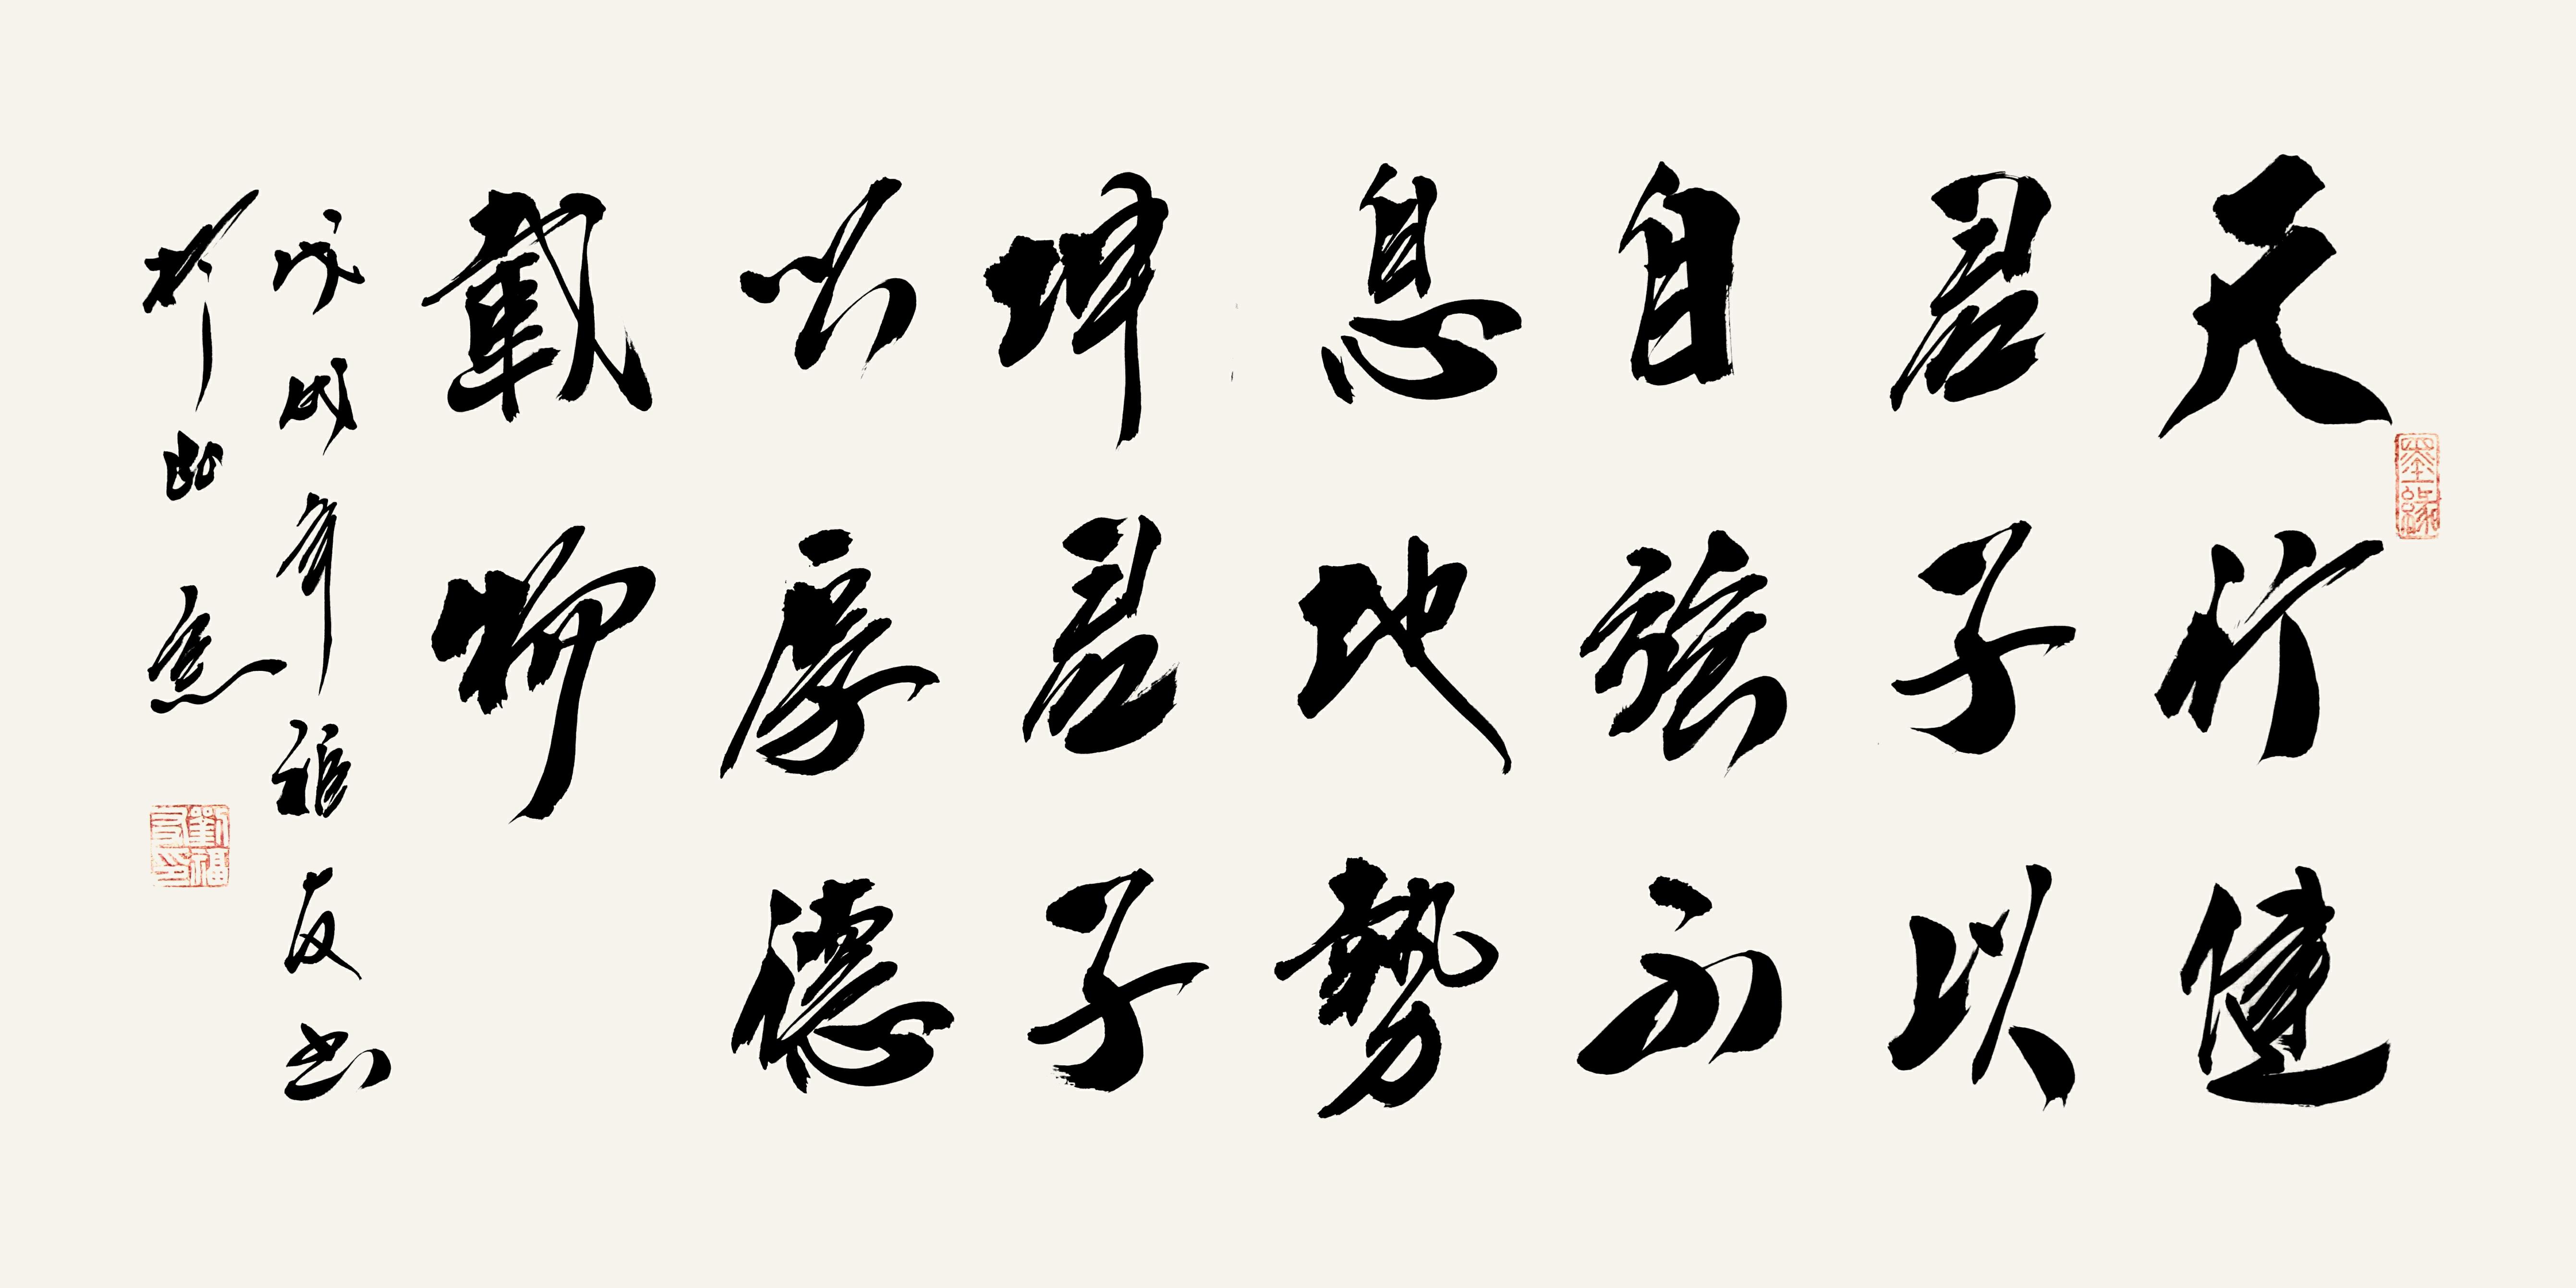 天行健
君子以
自強不
息地勢
坤君子
以厚德
載物
戊戌年福友书
於北京
墨緣
劉福友印